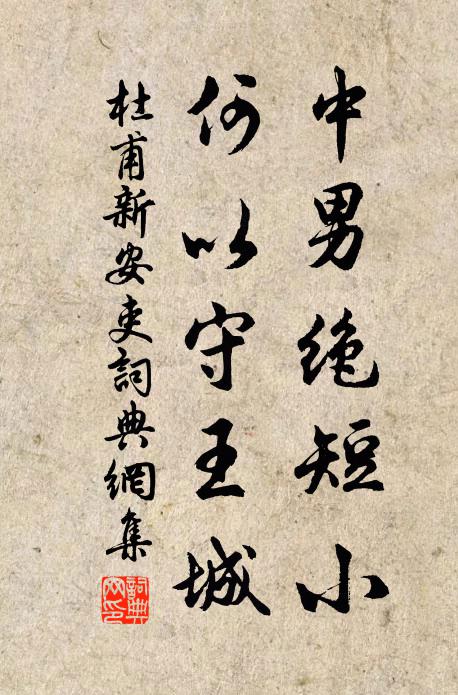 中男绝短小
何以守王城
杜甫新安吏詞典網集
詞典